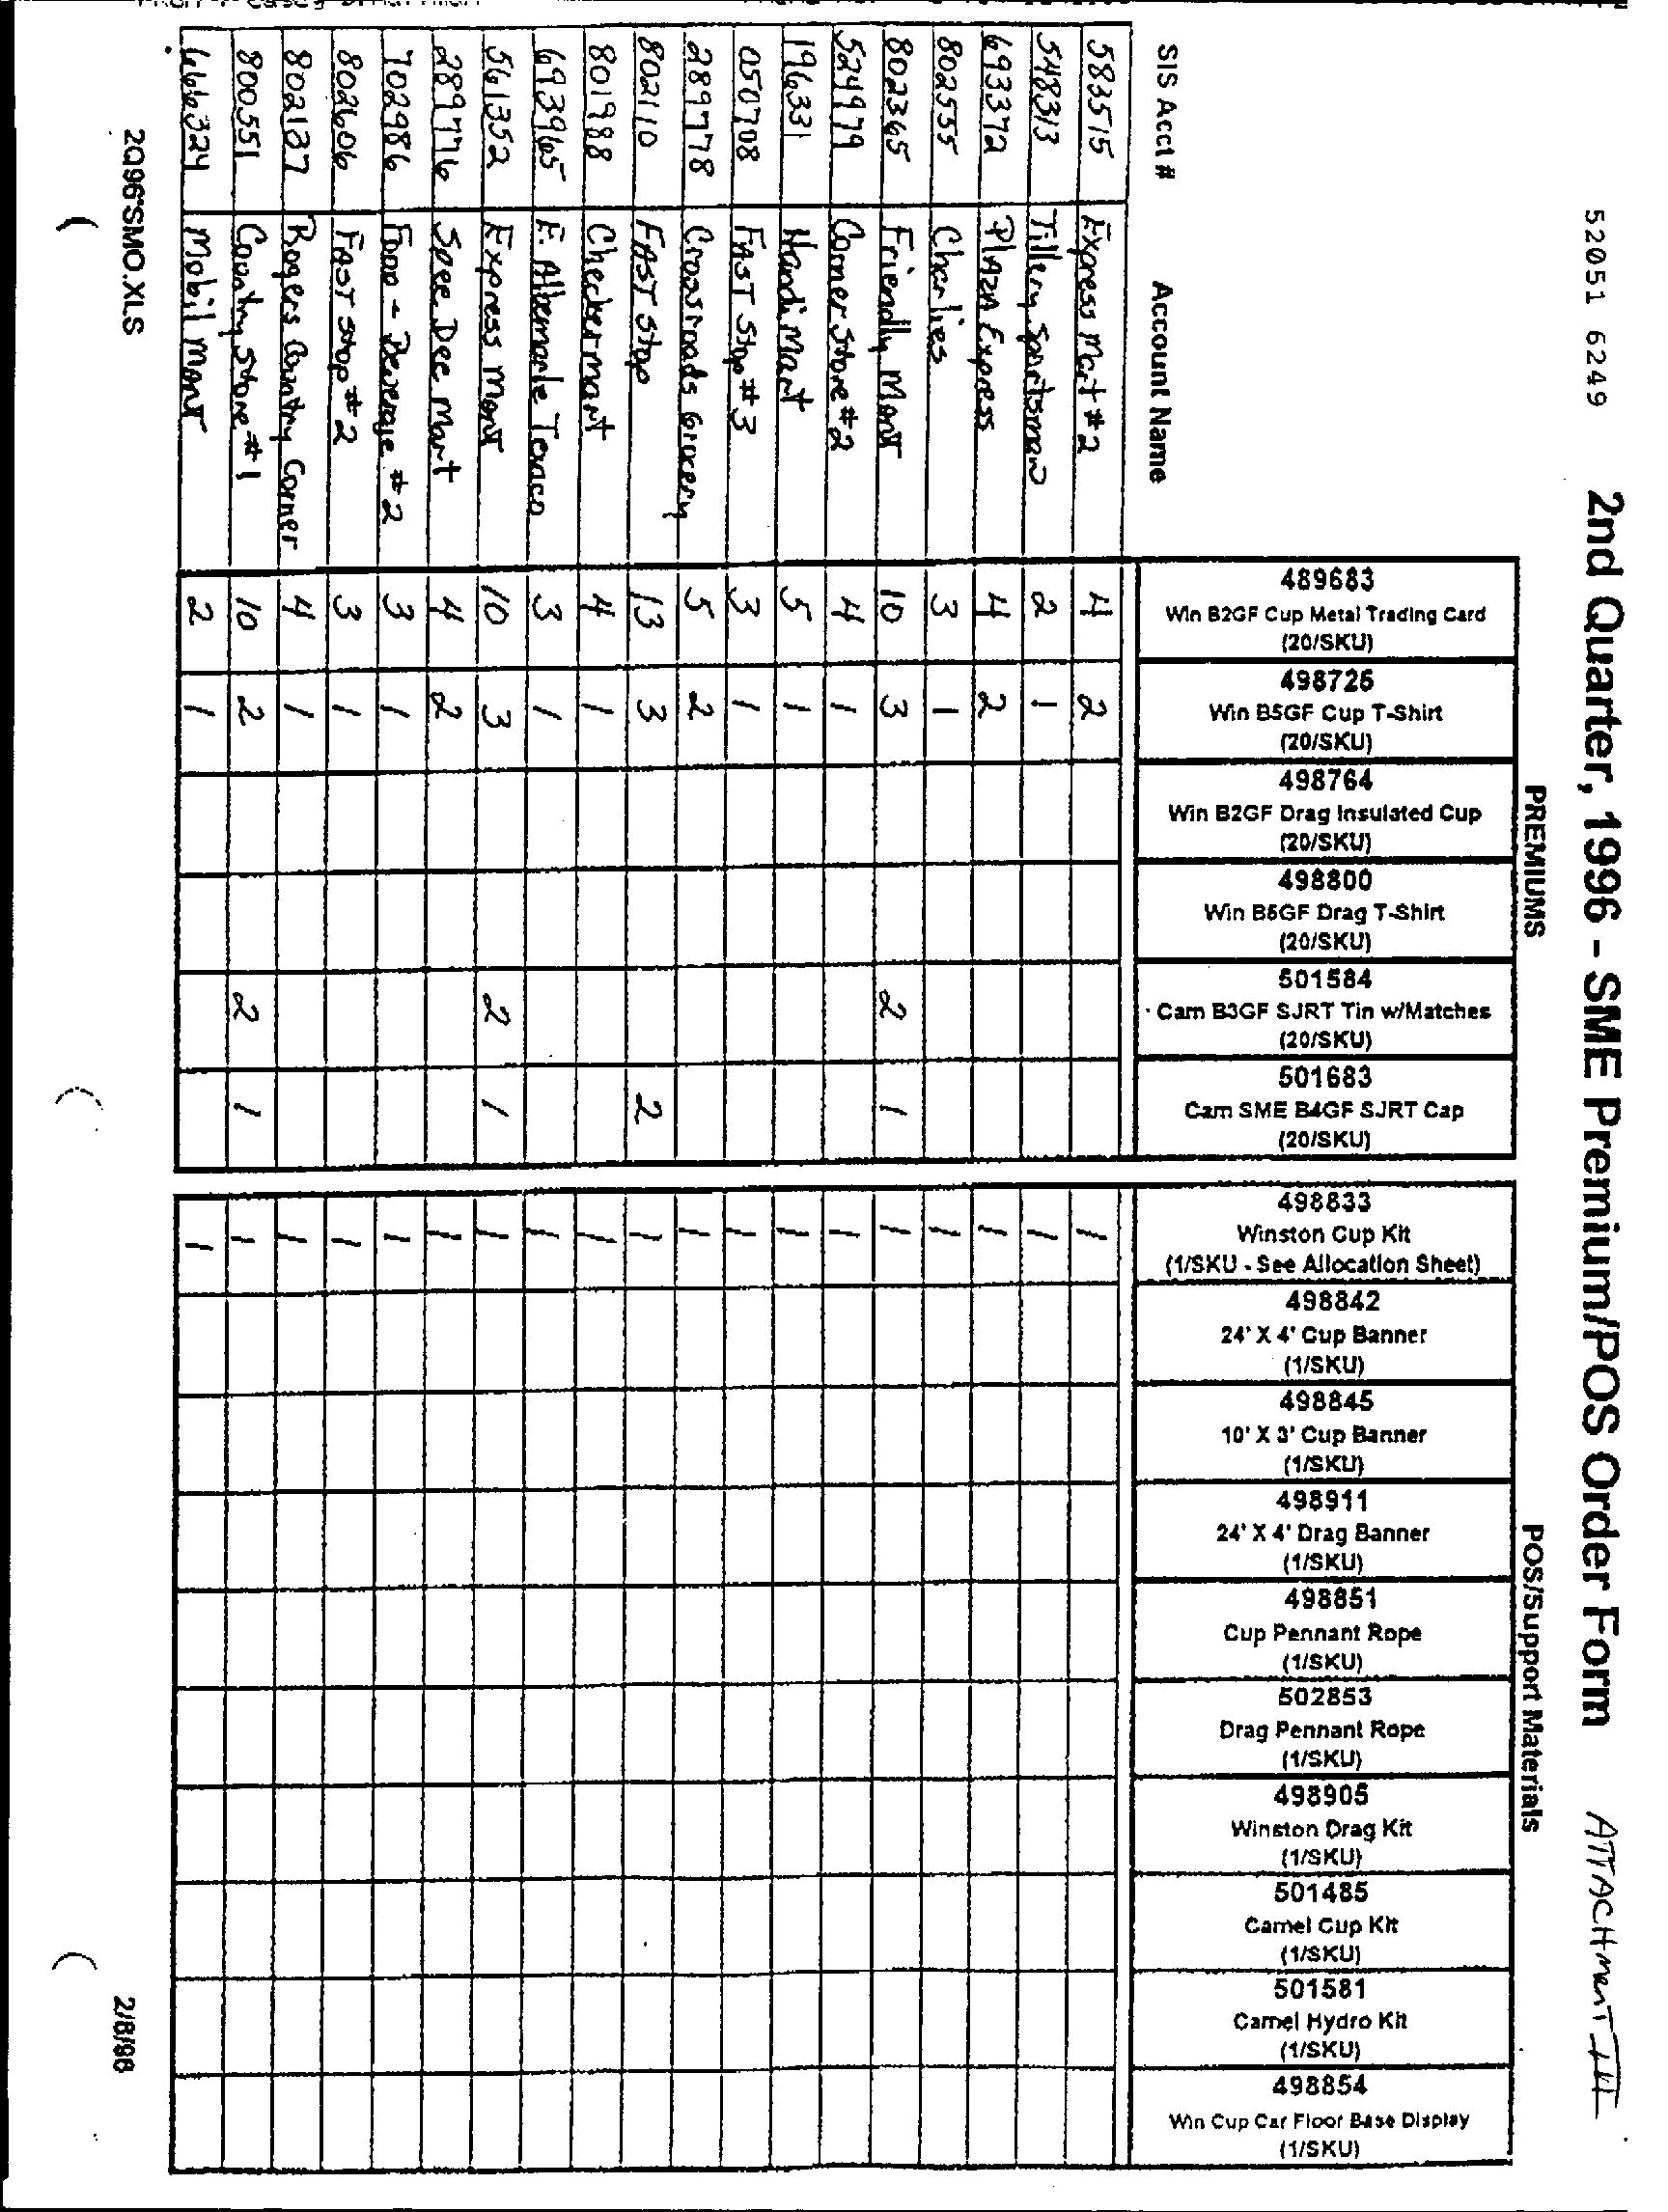 52051 6249
2nd Quarter, 1996 - SME Premium/POS Order Form
ATTACHmenT III
PREMIUMS
POS/Support Materials
SIS Acct #
Account Name
489683
Win B2GF Cup Metal Trading Card
(20/SKU)
498725
Win B5GF Cup T-Shirt
(20/SKU)
498764
Win B2GF Drag Insulated Cup
(20/SKU)
498800
Win B5GF Drag T-Shirt
(20/SKU)
501584
Cam B3GF SJRT Tin w/Matches
(20/SKU)
501683
Cam SME B4GF SJRT Cap
(20/SKU)
498833
Winston Cup Kit
(1/SKU - See Allocation Sheet)
498842
24' X 4' Cup Banner
(1/SKU)
498845
10' X 3' Cup Banner
(1/SKU)
498911
24' X 4' Drag Banner
(1/SKU)
498851
Cup Pennant Rope
(1/SKU)
502853
Drag Pennant Rope
(1/SKU)
498905
Winston Drag Kit
(1/SKU)
501485
Camel Cup Kit
(1/SKU)
501581
Camel Hydro Kit
(1/SKU)
498854
Win Cup Car Floor Base Display
(1/SKU)
583515 Express Mart #2 4 2 1
548313 Tillery Sportsman 2 1 1
693372 Plaza Express 4 2 1
802555 Charlies 3 1 1
802365 Friendly Mart 10 3 2 1 1
524979 Corner Store #2 4 1 1
196331 Handi Mart 5 1 1
050708 FAST Stop #3 3 1 1
289778 Crossroads Grocery 5 2 1
802110 FAST Stop 13 3 2 1
801988 Checkermart 4 1 1
693965 E. Albemarle Texaco 3 1 1
561352 Express Mart 10 3 2 1 1
289776 Spee Dee Mart 4 2 1
702986 Food - Beverage #2 3 1 1
802606 FAST Stop #2 3 1 1
802137 Rogers Country Corner 4 1 1
800551 Country Store #1 10 2 2 1 1
666324 Mobil Mart 2 1 1
2Q96'SMO.XLS